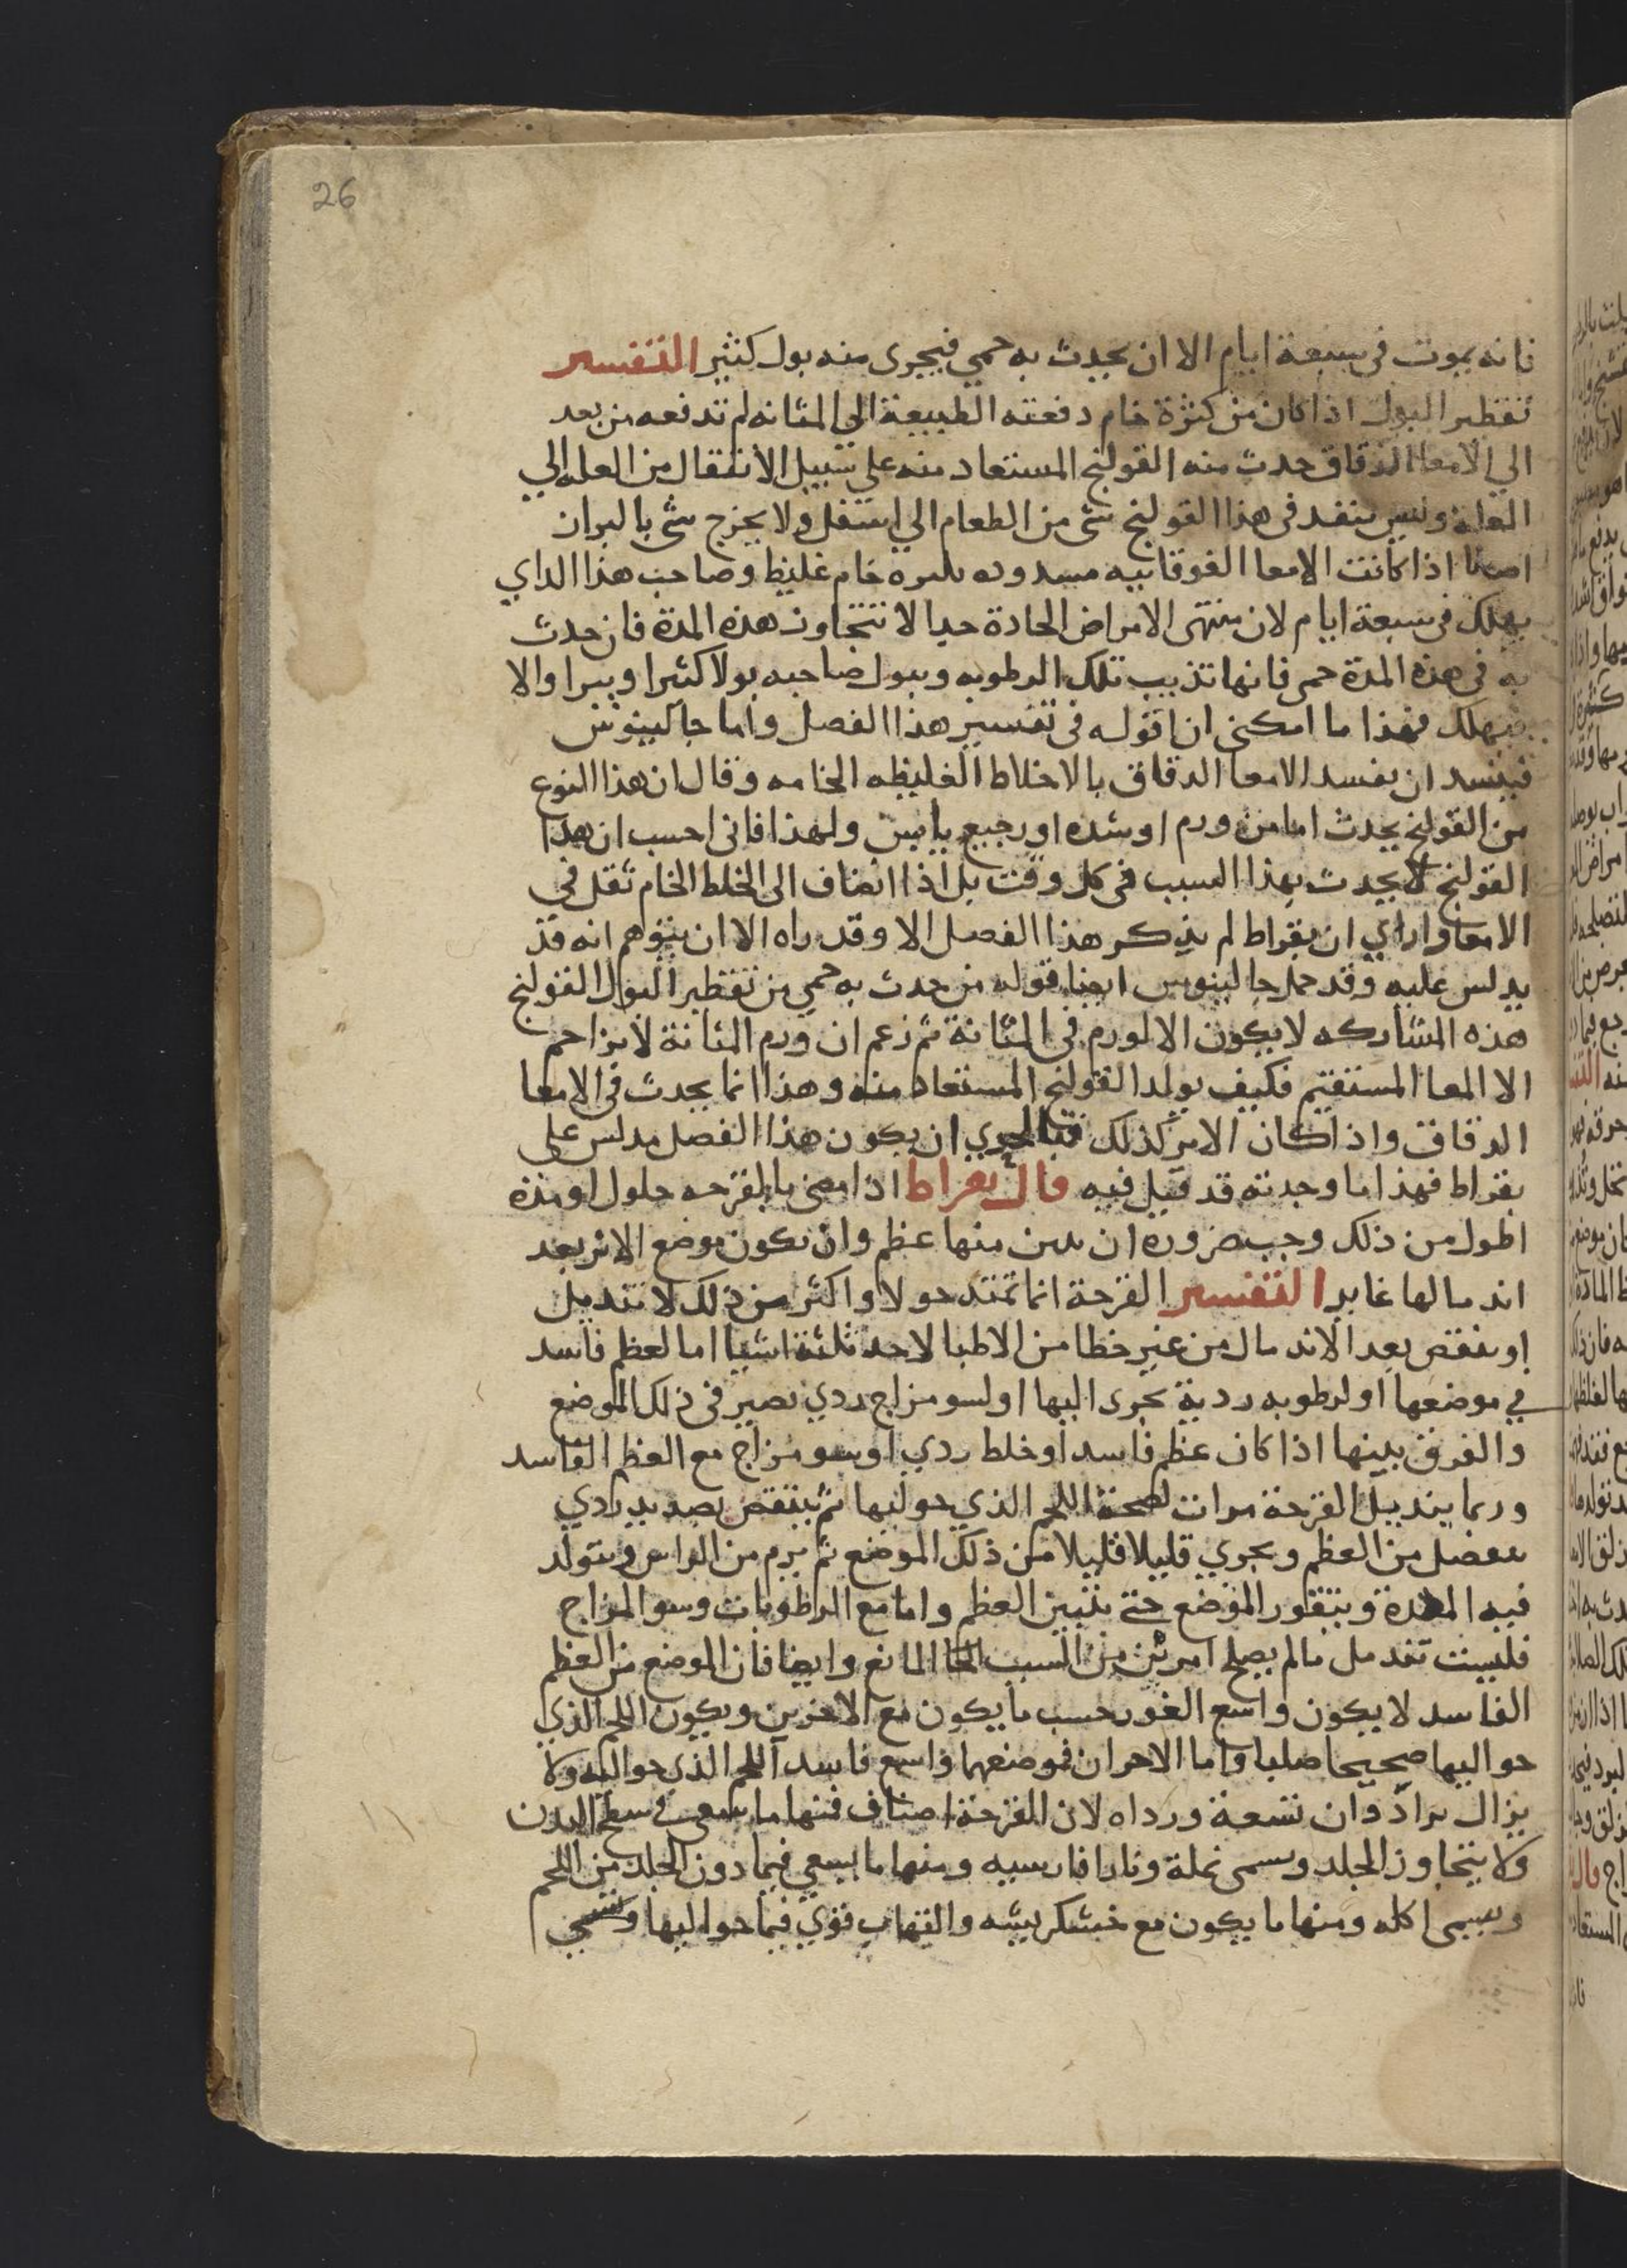 26
فانه يموت في سبعة ايام الا ان يحدث به حمي فيجري منه بول كثير التفسير
تقطير البول اذا كان من كثرة خام دفعته الطبيعة الي المثانه لم تدفعه من بعد
الي الامعا الدقاق حدث منه القولنج المستعاد منه علي سبيل الانتقال من العله الي
العلة وليس ينفد في هذا القولنج شي من الطعام الي اسفل ولا يخرج شي بالبراز
اصلا اذا كانت الامعا الفوقانيه مسدوده بلزه خام غليظ وصاحب هذا الداي
يهلك في سبعة ايام لان منتهي الامراض الحادة جدا لا تتجاوز هذه المدة فان حدث
به في هذه المدة حمي فانها تذيب تلك الرطوبه ويبول صاحبه بولا كثيرا ويبرا والا
فيهلك فهذا ما امكني ان اقوله في تفسير هذا الفصل واما جالينوس
فيفسد ان يفسد الامعا الدقاق بالاخلاط الغليظه الخامه وقال ان هذا النوع
من القولنج يحدث اما من ورم او سده او رجيع يابس ولهذا فاني احسب ان هذا
القولنج لا يحدث بهذا السبب في كل وقت بل اذا انضاف الي الخلط الخام ثقل في
الامعا واراي ان بقراط لم يذكر هذا الفصل الا وقد راه الا ان يتوهم انه قد
يدلس عليه وقد حمل جالينوس ايضا قوله من حدث به حمي من تقطير البول القولنج
هذه المشاركه لا يكون الا لورم في المثانة ثم زعم ان ورم المثانة لا يزاحم
الا المعا المستقيم فكيف يولد القولنج المستعاد منه وهذا انما يحدث في الامعا
الدقاق واذا كان الامر كذلك فبالحري ان يكون هذا الفصل مدلس علي
بقراط فهذا ما وجدته قد قيل فيه قال بقراط اذا مضي بالقرحه حلول او مدة
اطول من ذلك وجب ضروره ان يبين منها عظم وان يكون موضع الاثر بعد
اندمالها غايرا التفسير القرحة انما تمتد حولا واكثر من ذلك لا تندمل
او ينقض بعد الاندمال من غير خطا من الاطبا لاحد ثلثة اشيا اما لعظم فاسد
في موضعها او لرطوبه ردية تجري اليها او لسو مزاج ردي يصير في ذلك الموضع
والفرق بينها اذا كان عظم فاسد او خلط ردي او سو مزاج مع العظم الفاسد
وربما يندمل القرحة مرات لصحة اللحم الذي حوليها ثم ينتقض بصديد ردي
يفصل من العظم ويجري قليلا قليلا من ذلك الموضع ثم يرم من الراس ويتولد
فيه المدة ويتقور الموضع حتي يتبين العظم واما مع الرطوبات وسو المزاج
فليست تندمل ما لم يصلح السبب المانع وايضا فان الموضع من العظم
الفاسد لا يكون واسع الغور حسب ما يكون مع الاخرين ويكون اللحم الذي
حواليها صحيحا صلبا واما الاخران فموضعهما واسع فاسد اللحم الذي حواليه ولا
يزال يزادان تسعة ورداه لان القرحة اصناف فمنها ما يسعي في سطح البدن
ولا يتجاوز الجلد ويسمي نملة ونارا فارسيه ومنها ما يسعي فيما دون الجلد من اللحم
ويسمي اكله ومنها ما يكون مع خشكريشه والتهاب قوي فيما حواليها وتسمي